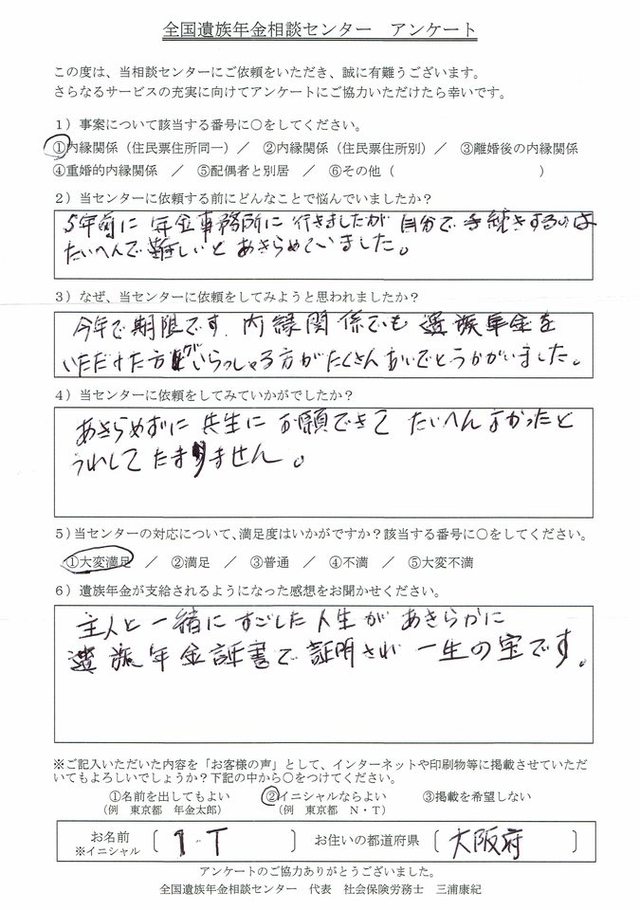 全国遺族年金相談センター　アンケート
この度は、当相談センターにご依頼をいただき、誠に有難うございます。
さらなるサービスの充実に向けてアンケートにご協力いただけたら幸いです。
1）事案について該当する番号に○をしてください。
①内縁関係（住民票住所同一）／　②内縁関係（住民票住所別）／　③離婚後の内縁関係
④重婚的内縁関係　／　⑤配偶者と別居　／　⑥その他（　　　　　　　　　　）
2）当センターに依頼する前にどんなことで悩んでいましたか？
5年前に 年金事務所に 行きましたが 自分で 手続きするのは
たいへんで難しいと あきらめていました。
3）なぜ、当センターに依頼をしてみようと思われましたか？
今年で期限です 内縁関係でも 遺族年金を
いただけた方がいらっしゃる方がたくさんおいでとうかがいました。
4）当センターに依頼をしてみていかがでしたか？
あきらめずに 先生に お願できて たいへん よかったと
うれしくて たまりません。
5）当センターの対応について、満足度はいかがですか？該当する番号に○をしてください。
①大変満足　／　②満足　／　③普通　／　④不満　／　⑤大変不満
6）遺族年金が支給されるようになった感想をお聞かせください。
主人と 一緒に すごした 人生が あきらかに
遺族年金証書で 証明され 一生の宝です。
※ご記入いただいた内容を「お客様の声」として、インターネットや印刷物等に掲載させていただ
いてもよろしいでしょうか？下記の中から○をつけてください。
①名前を出してもよい　②イニシャルならよい　③掲載を希望しない
（例　東京都　年金太郎）　（例　東京都　N・T）
お名前
※イニシャル
〔　I-T　〕　お住いの都道府県　〔　大阪府　〕
アンケートのご協力ありがとうございました。
全国遺族年金相談センター　代表　社会保険労務士　三浦康紀